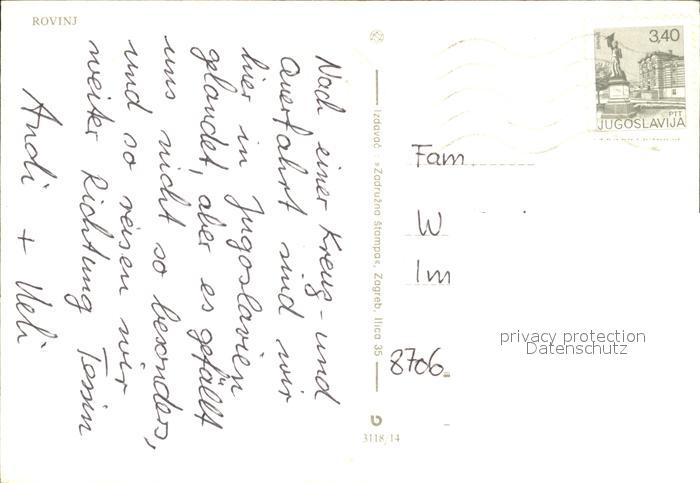 ROVINJ
Nach einer Kreuz- und
Querfahrt sind wir
hier in Jugoslavien
gelandet, aber es gefällt
uns nicht so besonders,
und so reisen wir
weiter Richtung Tessin
Andi + Ueli
Izdavač: »Zadružna štampa«, Zagreb, Ilica 35
3118/14
3,40
PTT
JUGOSLAVIJA
Fam.
W
Im
8706
privacy protection
Datenschutz